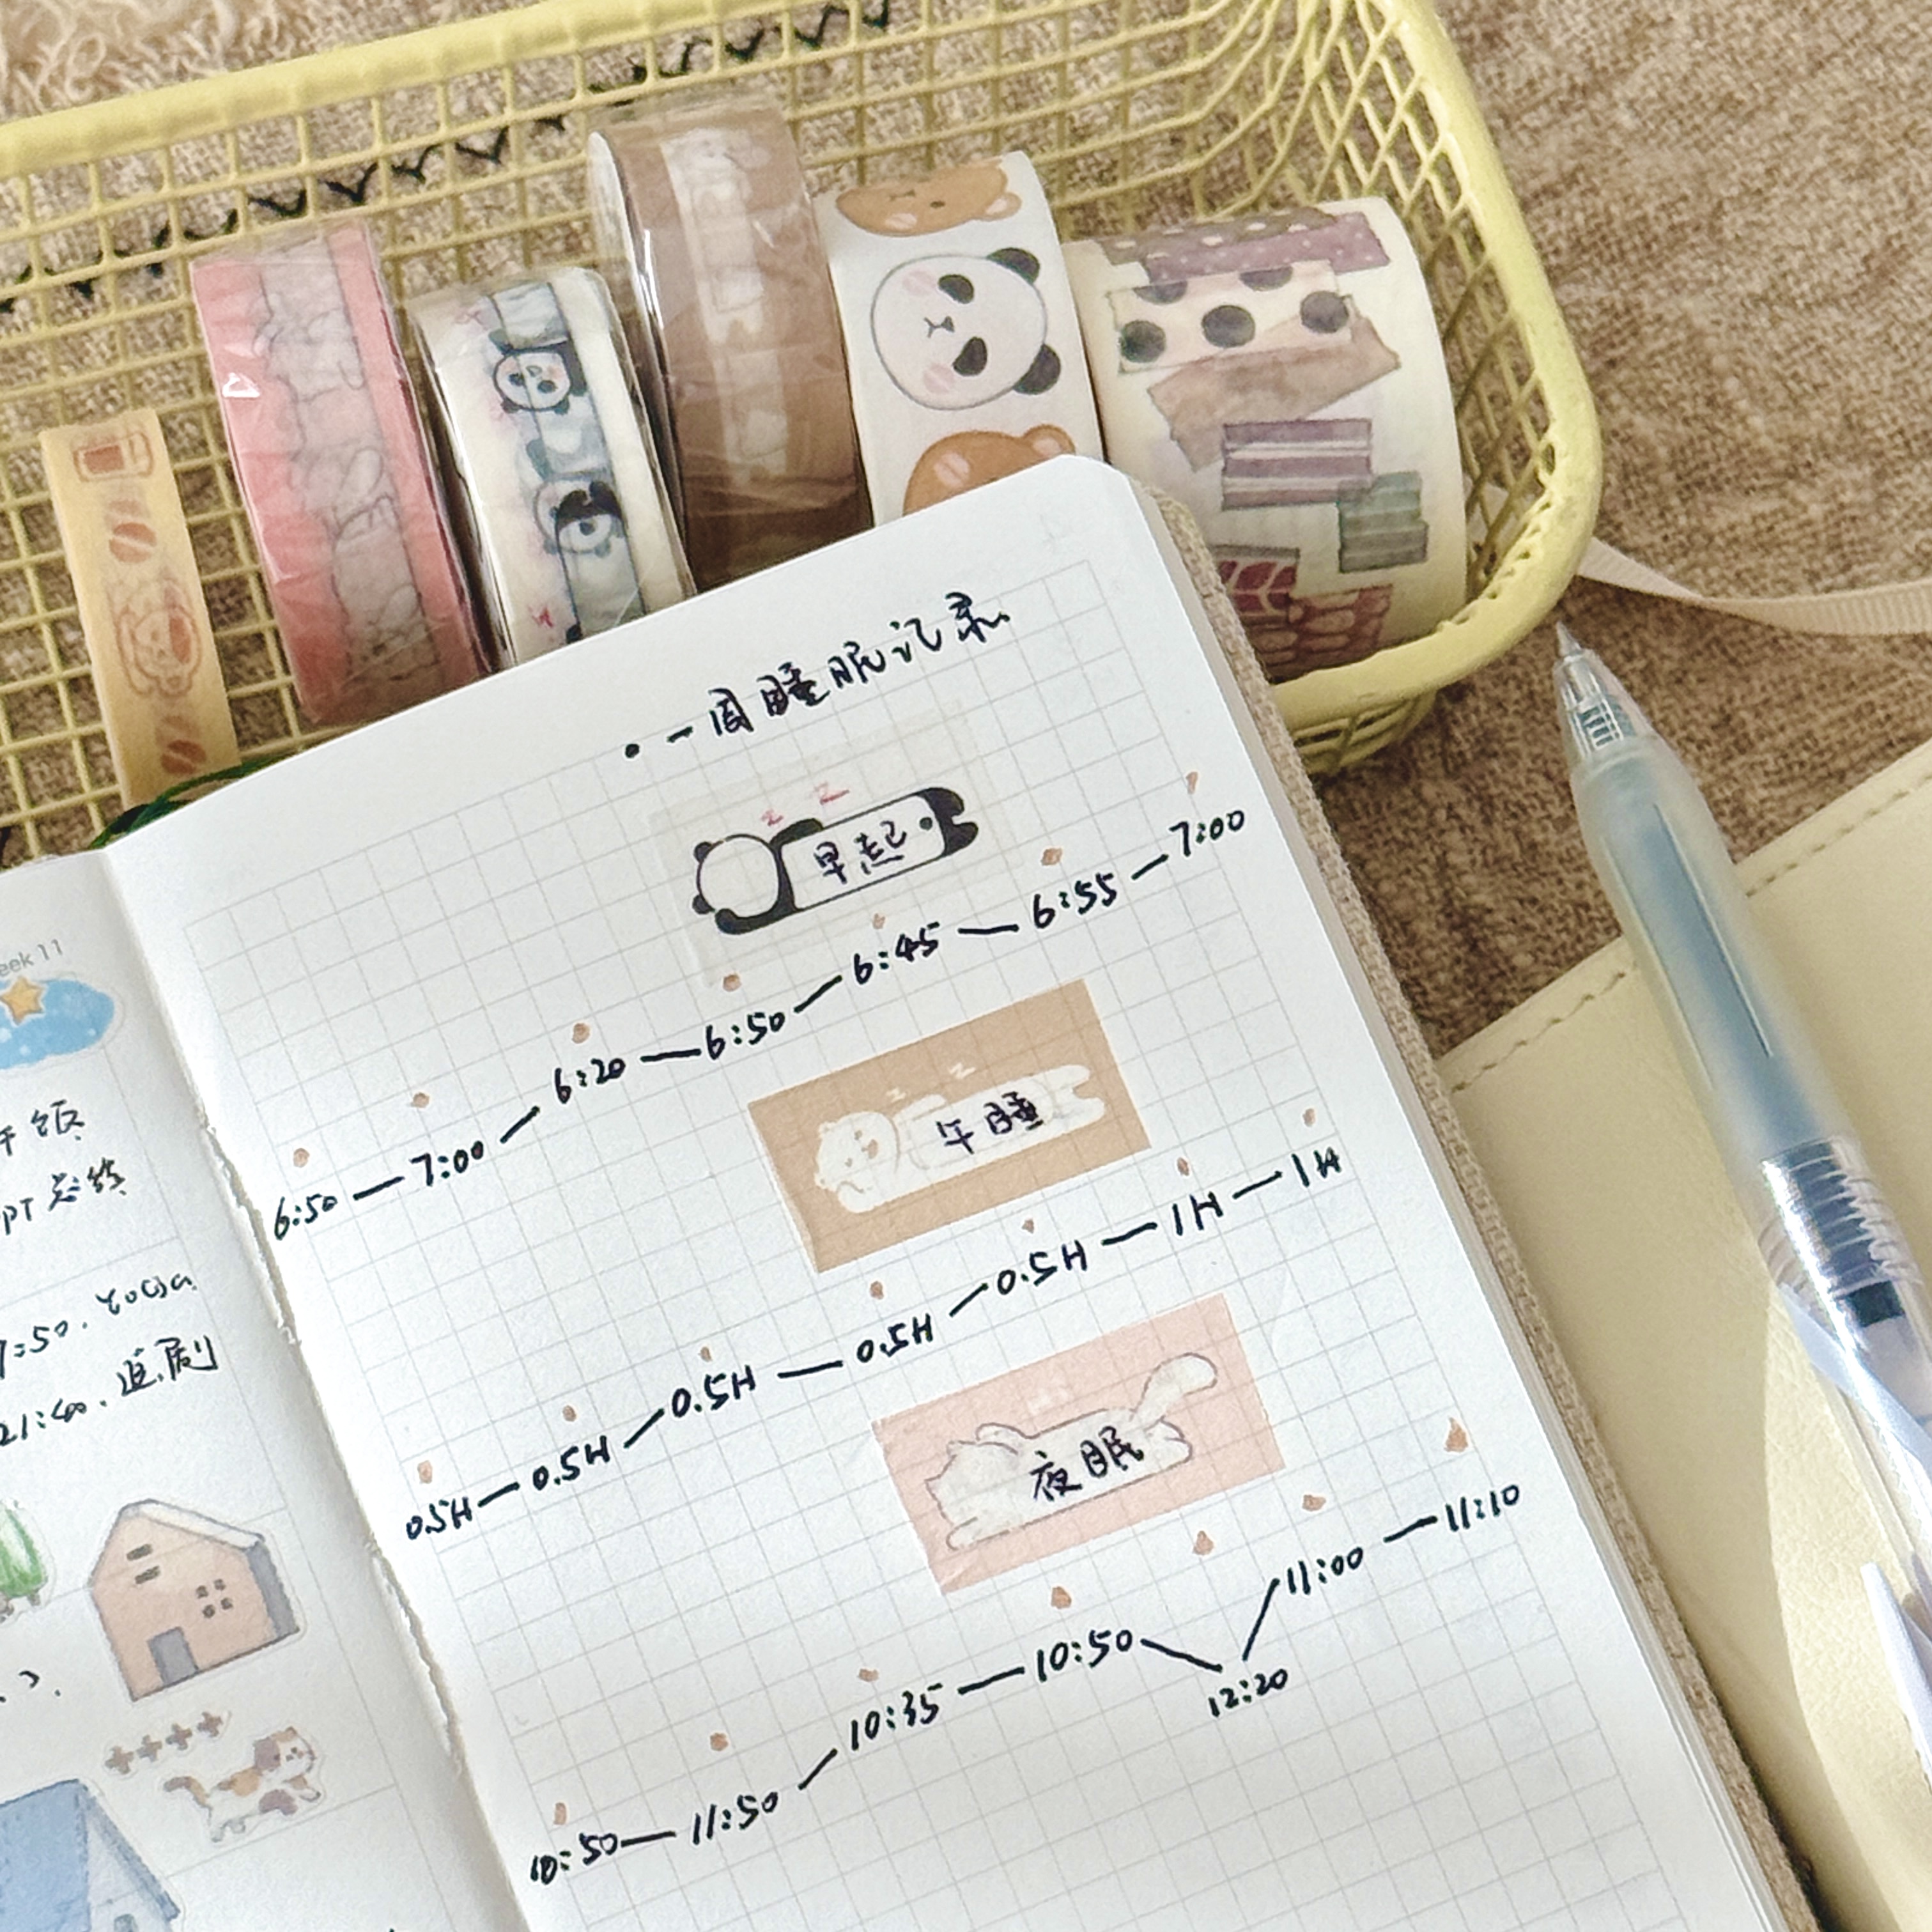 eek 11
午饭
PT总结
7:50. Yoga
21:40. 追剧
• 一周睡眠记录
早起
6:50 — 7:00 — 6:20 — 6:50 — 6:45 — 6:55 — 7:00
午睡
0.5H — 0.5H — 0.5H — 0.5H — 0.5H — 1H — 1H
夜眠
10:50 — 11:50 — 10:35 — 10:50 — 12:20 — 11:00 — 11:10